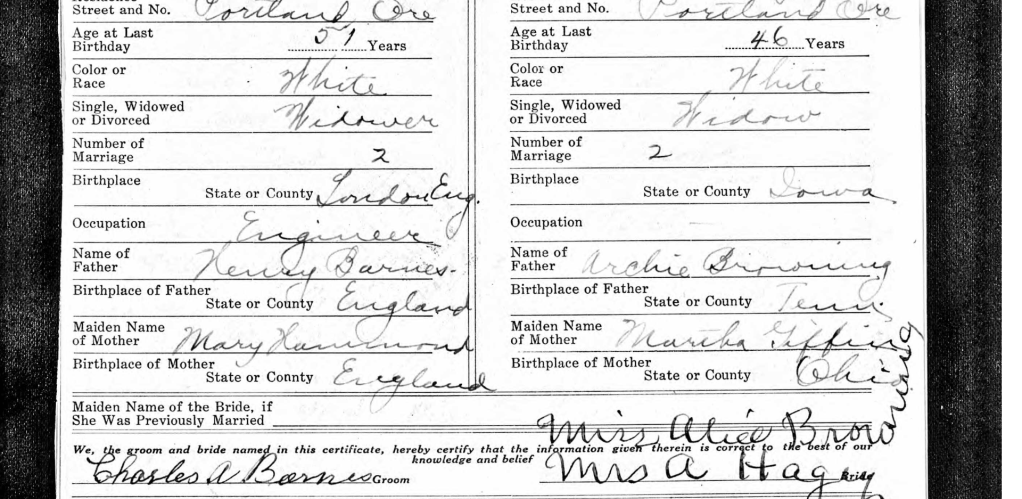 Street and No. Portland, Ore
Age at Last
Birthday 51 Years
Color or
Race White
Single, Widowed
or Divorced Widower
Number of
Marriage 2
Birthplace
State or County London Eng.
Occupation Engineer
Name of
Father Henry Barnes
Birthplace of Father
State or County England
Maiden Name
of Mother Mary Hammond
Birthplace of Mother
State or County England
Street and No. Portland Ore
Age at Last
Birthday 46 Years
Color or
Race White
Single, Widowed
or Divorced Widow
Number of
Marriage 2
Birthplace
State or County Iowa
Occupation
Name of
Father Archie Browning
Birthplace of Father
State or County Tenn.
Maiden Name
of Mother Martha Giffin
Birthplace of Mother
State or County Ohio
Maiden Name of the Bride, if
She Was Previously Married Miss Alice Browning
We, the groom and bride named in this certificate, hereby certify that the information given therein is correct to the best of our
knowledge and belief
Charles A Barnes Groom
Mrs A Hag Bride